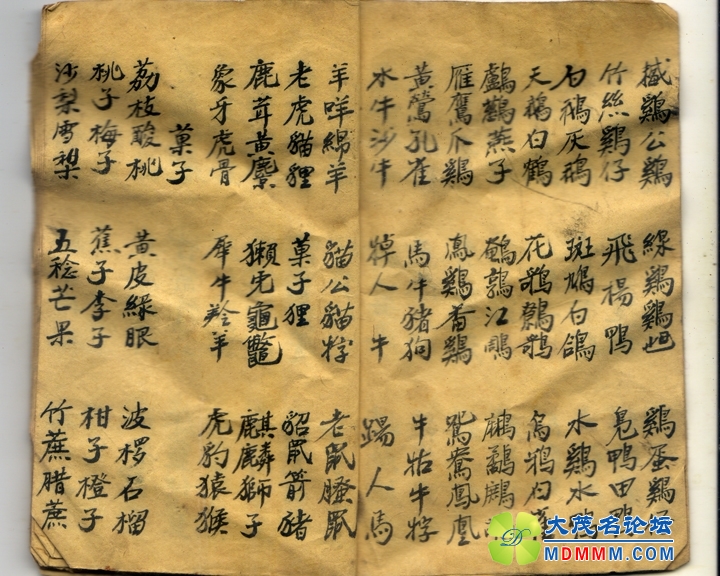 鷄公鷄 線鷄鷄乸 鷄蛋鷄仔
竹絲鷄仔 飛楊鴨 凫鴨田鴨
白鵝灰鵝 斑鳩白鴿 水鷄水
天鵝白鶴 花鴉 烏鴉白
燕子 鵪鶉江
雁鷹爪鷄 鳯鷄番鷄 鴛鴦鳳凰
黃鶯孔雀 馬牛豬狗 牛牯牛牸
水牛沙牛 人牛 踢人馬
羊咩綿羊 貓公貓牸 老鼠騷鼠
老虎貓狸 菓子狸 貂鼠箭豬
鹿茸黃麖 獺兔龜鼈 麒麟獅子
象牙虎骨 犀牛羚羊 虎豹猿猴
菓子
荔枝酸桃 黃皮綠眼 波椤石榴
桃子梅子 蕉子李子 柑子橙子
沙梨雪梨 五稔芒果 竹蔗腊蔗
大茂名论坛
MDMMM.COM